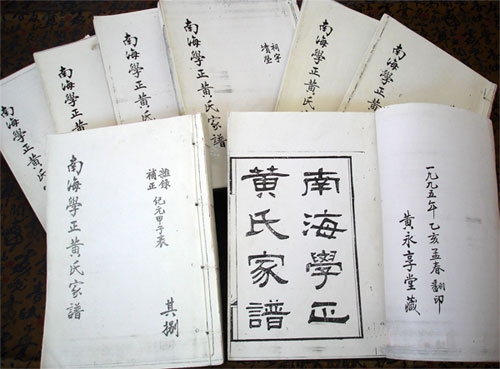 南海學正黃氏家
南海學正黃氏
南海學正黃氏
南海學正黃氏家譜
祠宇
墳塋
南海學正黃氏
南海學正黃
南海學正黃氏家譜
雜錄
補正
紀元甲子表
其捌
南海學正
黃氏家譜
一九九五年乙亥孟春翻印
黃永享堂藏